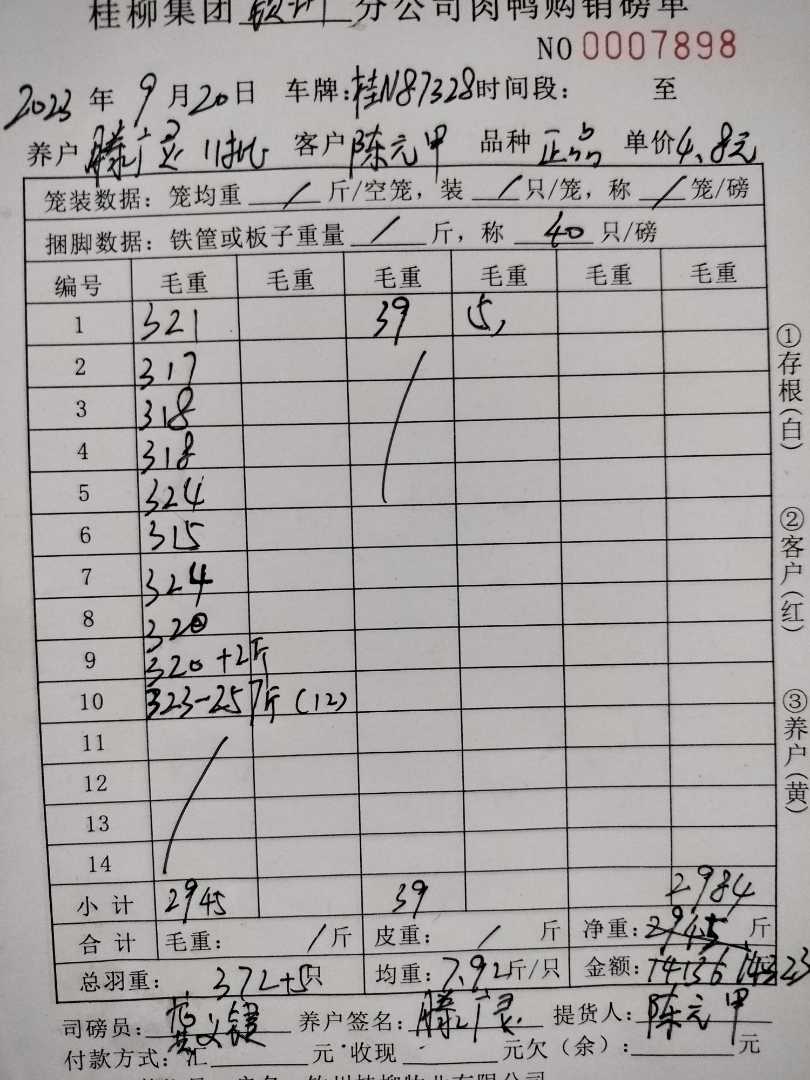 桂柳集团 钦州 分公司肉鸭购销磅单
NO 0007898
2023 年 9 月 20 日 车牌:桂N87328 时间段: 至
养户 滕广灵 11批 客户 陈元甲 品种 正品 单价 4.8元
笼装数据:笼均重 / 斤/空笼,装 / 只/笼,称 / 笼/磅
捆脚数据:铁筐或板子重量 / 斤,称 40 只/磅
编号 毛重 毛重 毛重 毛重 毛重 毛重
1 321 39 15,
2 317
3 318
4 318
5 324
6 315
7 324
8 320
9 320+2斤
10 323-257斤(12)
11
12
13
14
小计 2945 39 2984
合计 毛重: / 斤 皮重: / 斤 净重:2945 斤
总羽重: 372+5只 均重:7.92斤/只 金额:14136 14323
司磅员: 养户签名:滕广灵 提货人:陈元甲
付款方式:汇 元.收现 元欠(余): 元
①存根(白)
②客户(红)
③养户(黄)